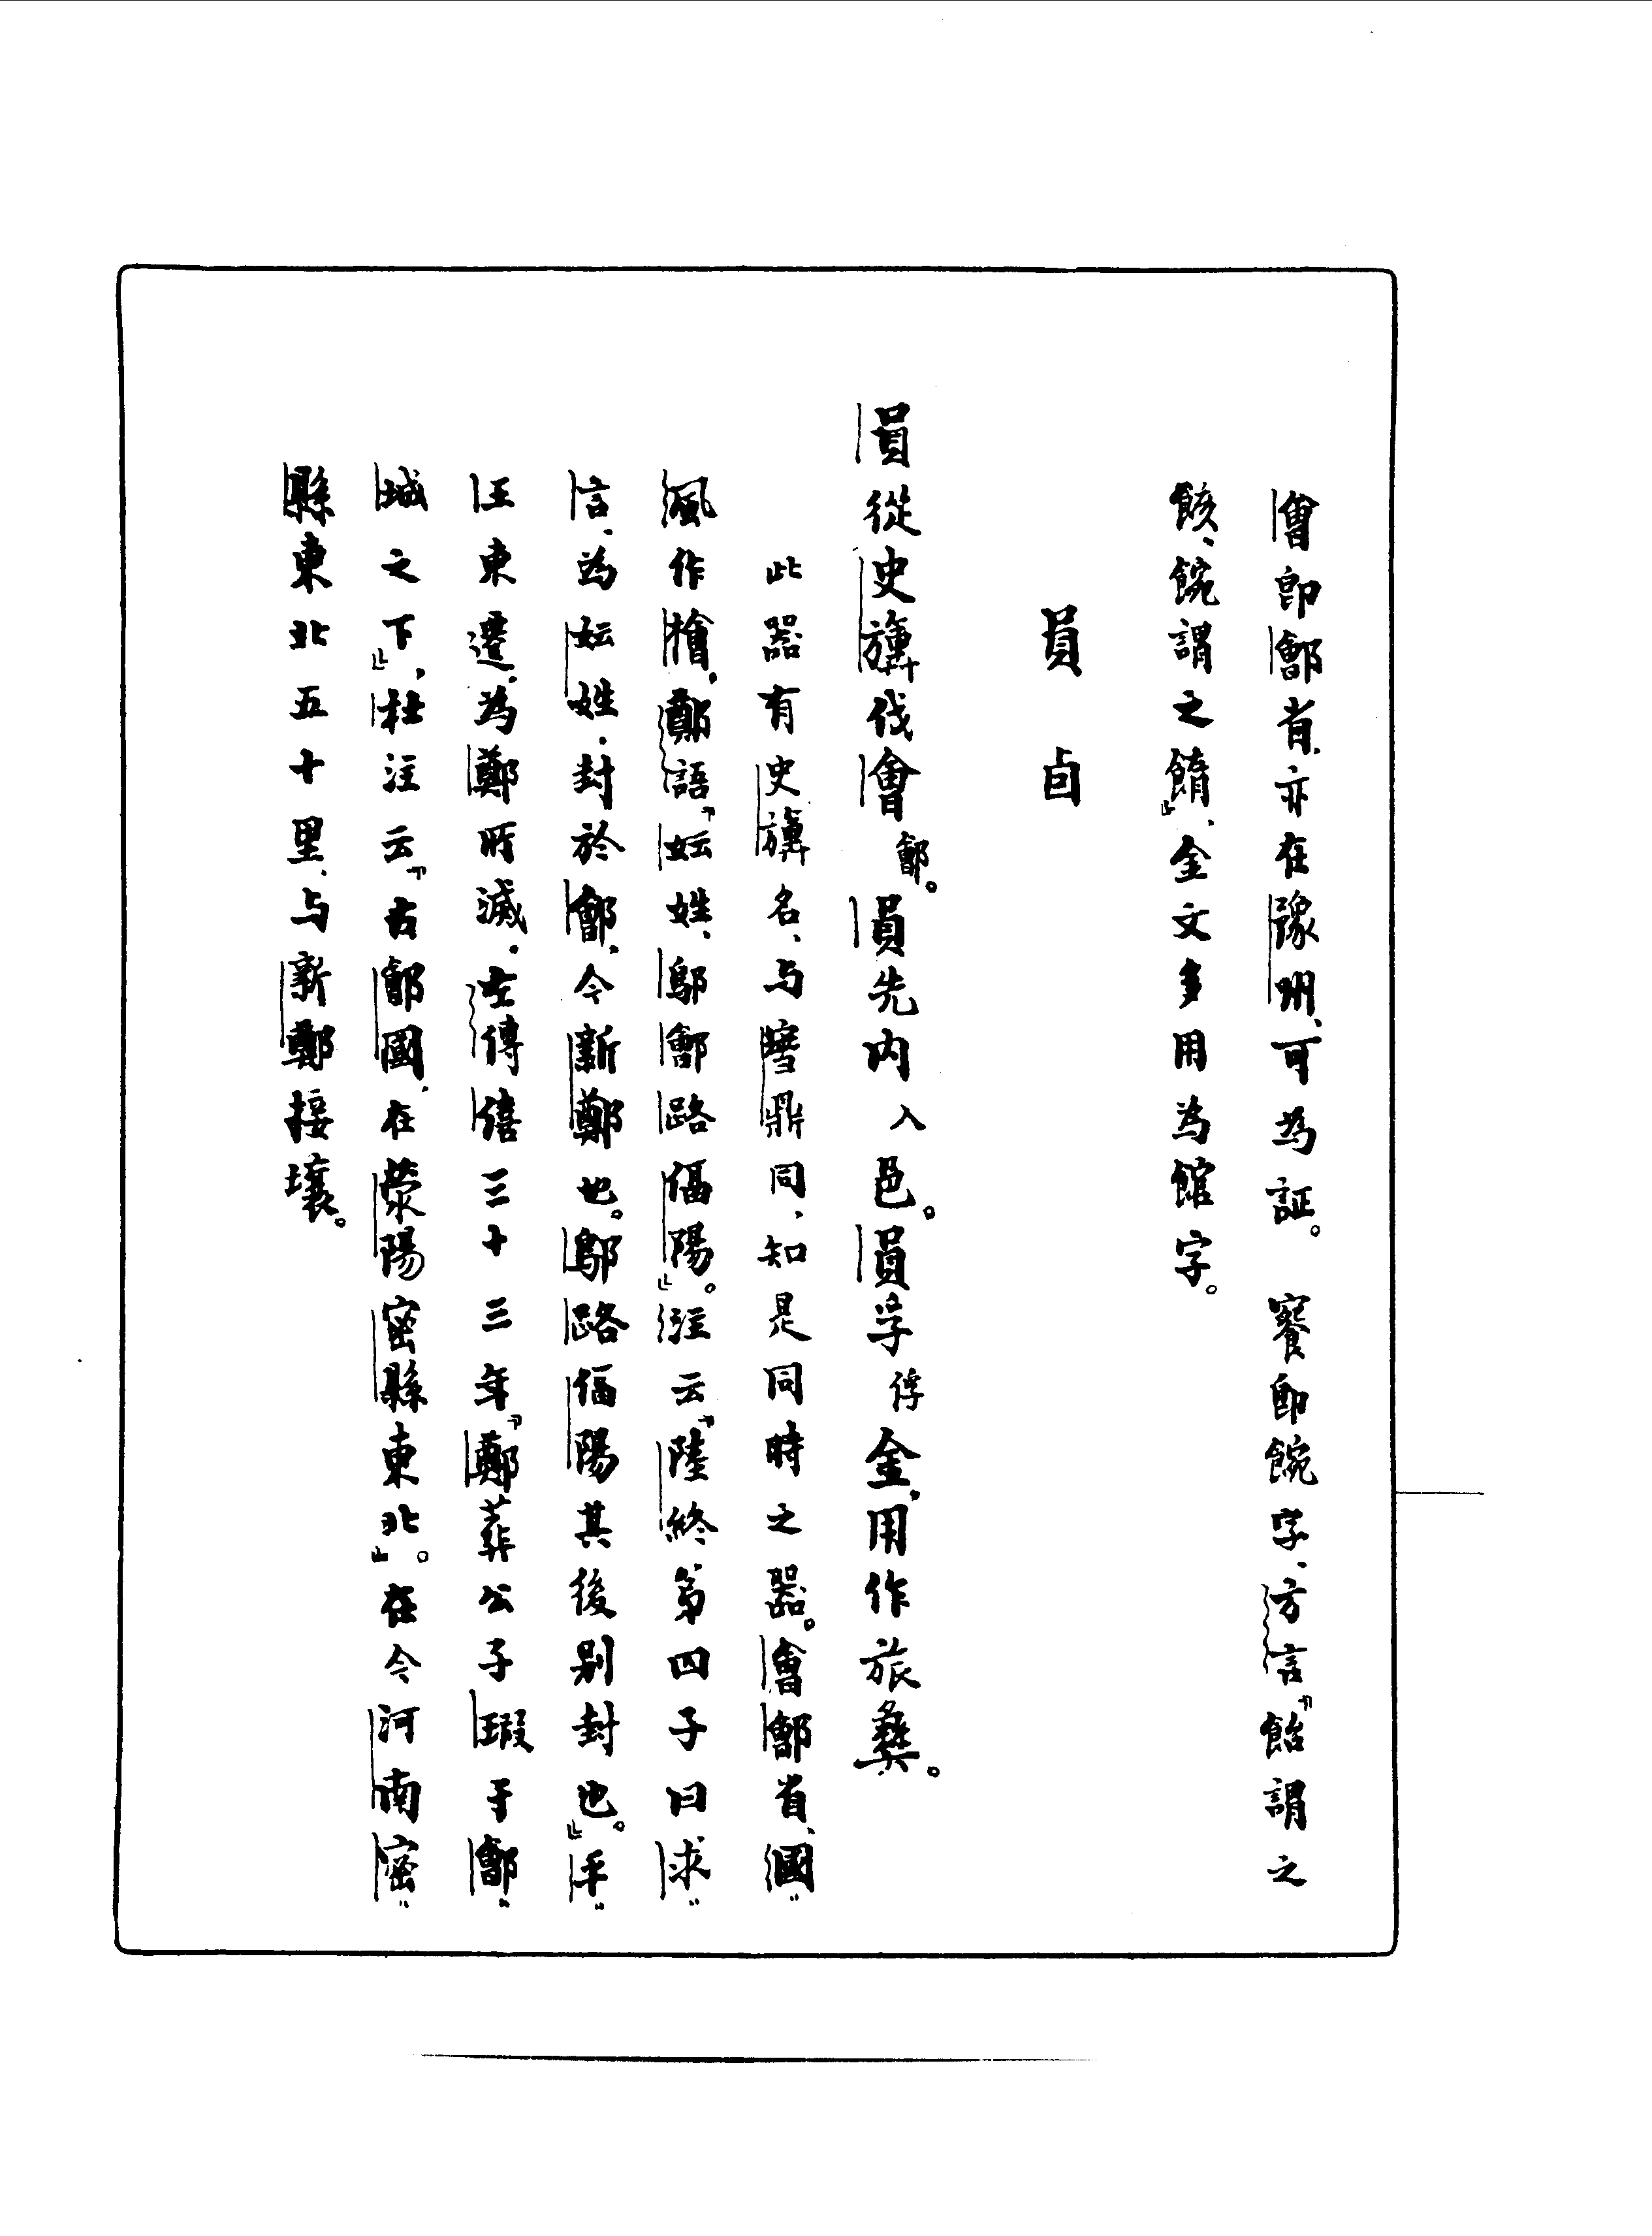 會即鄶省、亦在豫州、可為証。 饔即䬼字、方言『飴謂之
䬵、䬼謂之䭉』、金文多用為館字。
員卣
員從史旟伐會鄶。員先內入邑。員孚俘金、用作旅彝。
此器有史旟名、与䨮鼎同、知是同時之器。會鄶省、國
風作檜、鄭語『妘姓、鄔鄶路偪陽』。注云『陸終第四子曰求
言、為妘姓、封於鄶、今新鄭也。鄔路偪陽其後別封也。』平
王東遷、為鄭所滅。左傳僖三十三年『鄭葬公子瑕于鄶
城之下』、杜注云『古鄶國、在滎陽密縣東北』。在今河南密
縣東北五十里、与新鄭接壤。